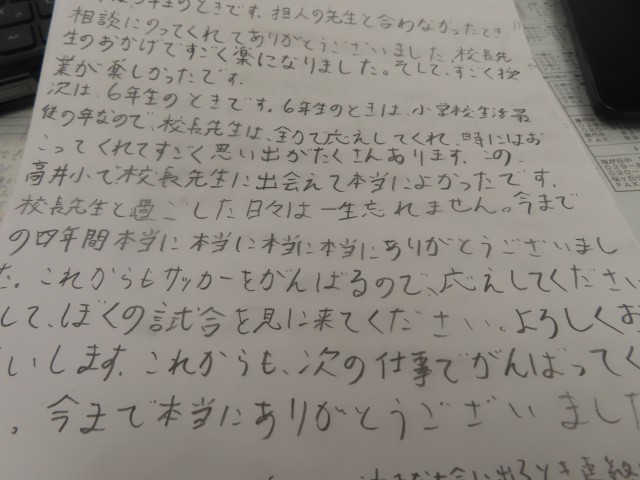 5年生のときです。担人の先生と合わなかったとき
相談にのってくれてありがとうございました。校長先
生のおかげですごく楽になりました。そして、すごく授
業が楽しかったです。
次は、6年生のときです。6年生のときは、小学校生活最
後の年なので、校長先生は、全力で応えしてくれ、時にはお
こってくれてすごく思い出がたくさんあります。この、
高井小で校長先生に出会えて本当によかったです。
校長先生と過ごした日々は一生忘れません。今まで
の四年間本当に本当に本当に本当にありがとうございまし
た。これからもサッカーをがんばるので、応えしてくださ
して、ぼくの試合を見に来てください。よろしくお
いします。これからも、次の仕事でがんばってく
。今まで本当にありがとうございました